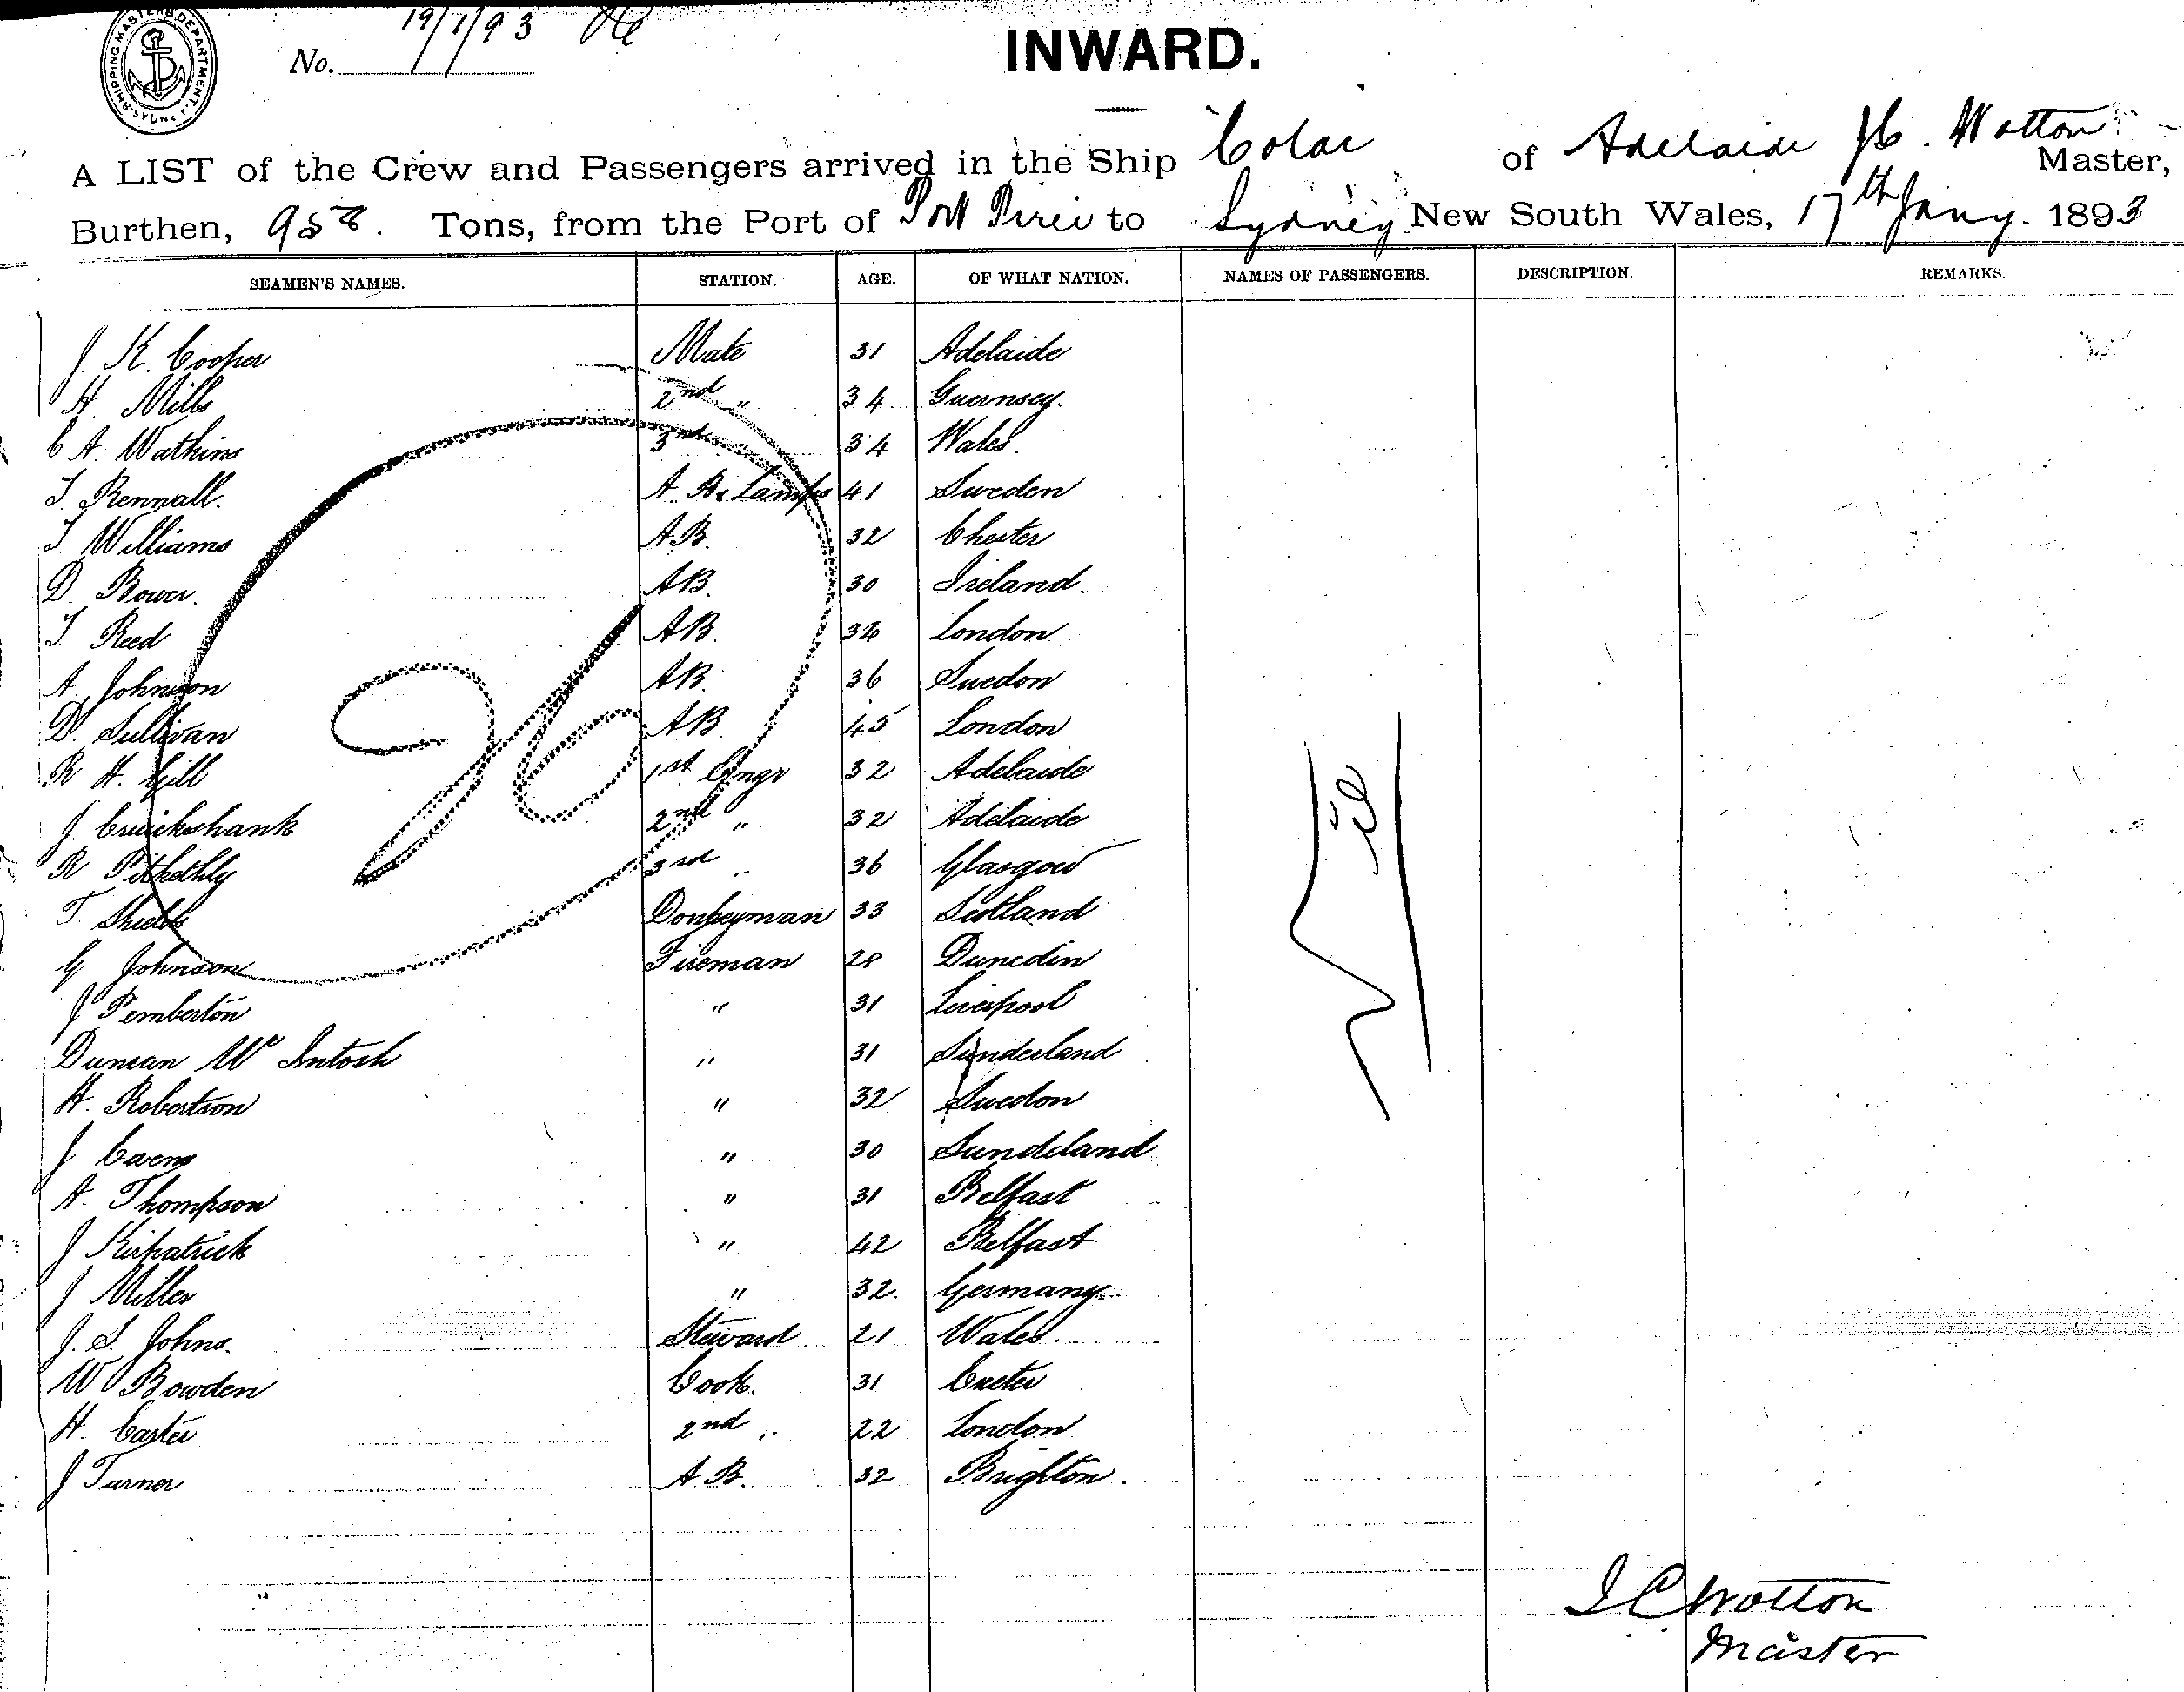 SHIPPING MASTER'S DEPARTMENT. SYDNEY
No. 19/1/93
INWARD.
A LIST of the Crew and Passengers arrived in the Ship Colac of Adelaide J C. Wotton Master,
Burthen, 958. Tons, from the Port of Port Pirie to Sydney New South Wales, 17th Jany. 1893
SEAMEN'S NAMES. STATION. AGE. OF WHAT NATION. NAMES OF PASSENGERS. DESCRIPTION. REMARKS.
J. K. Cooper Mate 31 Adelaide
H. Mills 2nd " 34 Guernsey.
C A. Watkins 3rd " 34 Wales.
T. Rennall. A.B. & Lamps 41 Sweden
T. Williams A.B. 32 Chester
D. Bower. AB. 30 Ireland.
T. Reed AB. 36 London
A. Johnson AB. 36 Swedon
D. Sullivan AB. 45 London
R H. Gill 1st Engr 32 Adelaide
J. Cruickshank 2nd " 32 Adelaide
R Pitkethly 3rd " 36 Glasgow
T. Shields Donkeyman 33 Scotland
G Johnson Fireman 28 Dunedin
J Pemberton " 31 Liverpool
Duncan Mc Intosh " 31 Sunderland
H. Robertson " 32 Swedon
J " 30 Sundeland
A. Thompson " 31 Belfast
J Kirpatrick " 42 Belfast
J Miller " 32. Germany.
J. S. Johns. Steward 21 Wales.
W Bowden Cook. 31 Exeter
H. Carter 2nd " 22 London
J Turner A B. 32 Brighton.
J C Wotton
Master